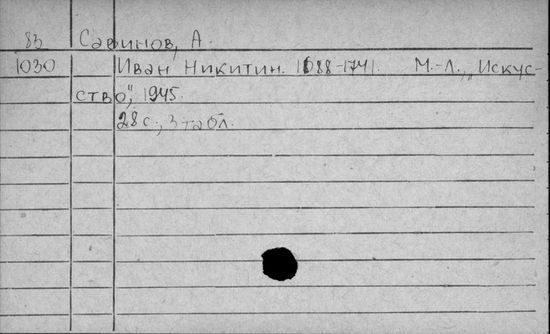 83 Савинов, А.
1030 Иван Никитин. 1688-1741. М.-Л., „Искус-
ство", 1945.
28 с., 3 табл.